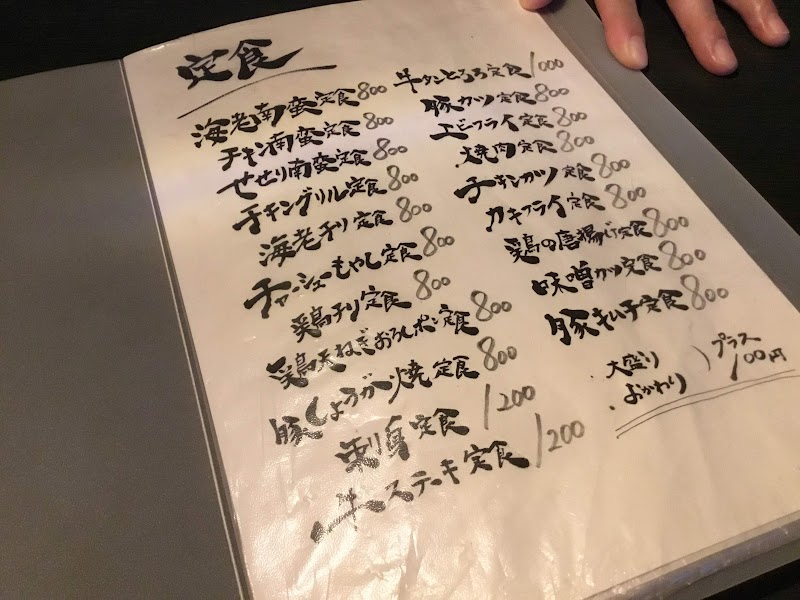 定食
海老南蛮定食 800
チキン南蛮定食 800
せせり南蛮定食 800
チキングリル定食 800
海老チリ定食 800
チャーシューもやし定食 800
鶏チリ定食 800
鶏天ねぎおろしポン定食 800
豚しょうが焼定食 800
刺身定食 1200
牛ステーキ定食 1200
牛タンとろろ定食 1000
豚カツ定食 800
エビフライ定食 800
焼肉定食 800
チキンカツ定食 800
カキフライ定食 800
鶏の唐揚げ定食 800
味噌カツ定食 800
豚キムチ定食 800
・大盛り
・おかわり
プラス
100円